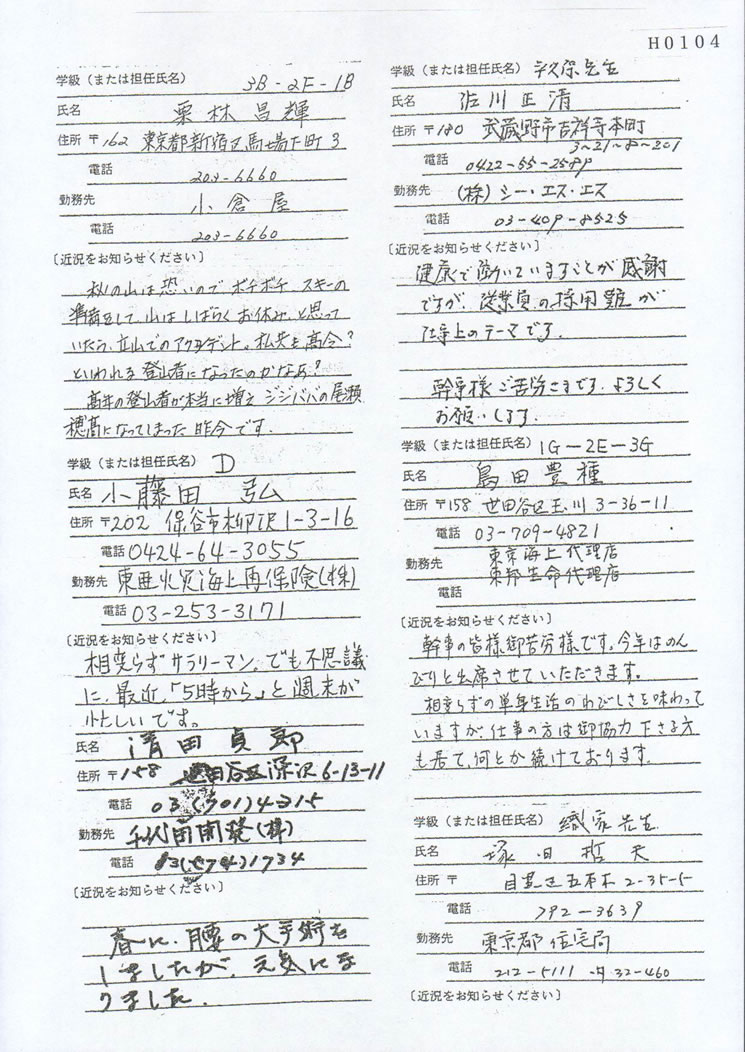 H0104
学級（または担任氏名） 3B-2F-1B
氏名 栗林昌輝
住所 〒162 東京都新宿区馬場下町3
電話 203-6660
勤務先 小倉屋
電話 203-6660
〔近況をお知らせください〕
秋の山は恐いのでボチボチ スキーの
準備をして、山はしばらくお休み、と思って
いたら、立山でのアクシデント。私共も高令?
といわれる登山者になったのかなあ?
高年の登山者が本当に増え ジジババの尾瀬
穂高になってしまった昨今です。
学級（または担任氏名） D
氏名 小藤田 弘
住所 〒202 保谷市柳沢1-3-16
電話 0424-64-3055
勤務先 東亜火災海上再保険(株)
電話 03-253-3171
〔近況をお知らせください〕
相変らずサラリーマン。でも不思議
に、最近、「5時から」と週末が
忙しいです。
氏名 清田貞郎
住所 〒158 世田谷区深沢6-13-11
電話 03(701)4215
勤務先 千代田開発(株)
電話 03( )1734
〔近況をお知らせください〕
春に、腰の大手術を
しましたが、元気にな
りました.
学級（または担任氏名） 先生
氏名 佐川正清
住所 〒180 武蔵野市吉祥寺本町
3-21-8-201
電話 0422-55-2589
勤務先 (株)シー・エス・エス
電話 03-409-8525
〔近況をお知らせください〕
健康で働いていますことが感謝
ですが、従業員の採用難が
仕事上のテーマです。
幹事様ご苦労さまです。よろしく
お願いします。
学級（または担任氏名） 1G-2E-3G
氏名 島田豊種
住所 〒158 世田谷区玉川 3-36-11
電話 03-709-4821
勤務先 東京海上代理店
東邦生命代理店
電話
〔近況をお知らせください〕
幹事の皆様御苦労様です。今年はのん
びりと出席させていただきます。
相変らずの単身生活のわびしさを味わって
いますが、仕事の方は御協力下さる方
も居て、何とか続けております。
学級（または担任氏名） 織家先生
氏名 塚田哲夫
住所 〒 目黒区五本木 2-35-5
電話 792-3639
勤務先 東京都住宅局
電話 212-5111 内32-460
〔近況をお知らせください〕